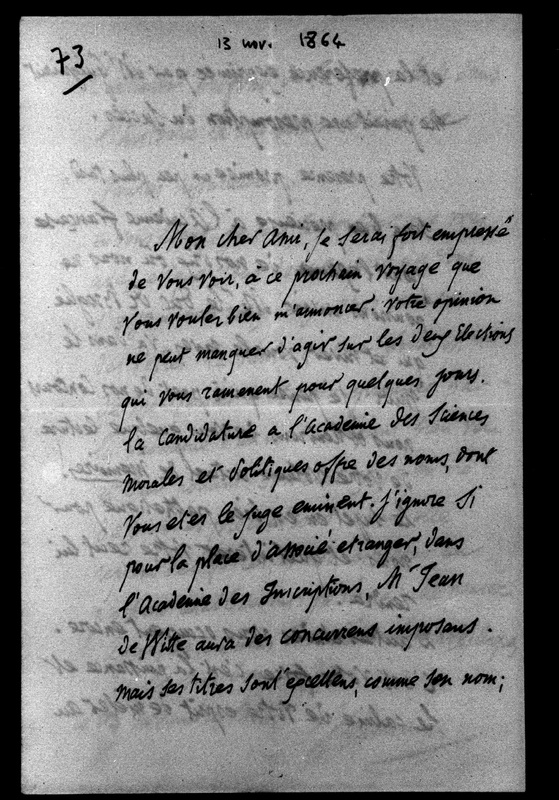 73
13 nov. 1864
Mon cher Ami, je serai fort empressé
de vous voir, à ce prochain voyage que
vous voulez bien m'annoncer. Votre opinion
ne peut manquer d'agir sur les deux Elections
qui vous ramenent pour quelques jours.
la candidature a l'Academie des Sciences
morales et politiques offre des noms, dont
vous etes le juge eminent. j'ignore si
pour la place d'associé etranger, dans
l'Academie des Inscriptions, Mr Jean
de Witte aura des concurrens imposans.
mais ses titres sont excellens, comme son nom;